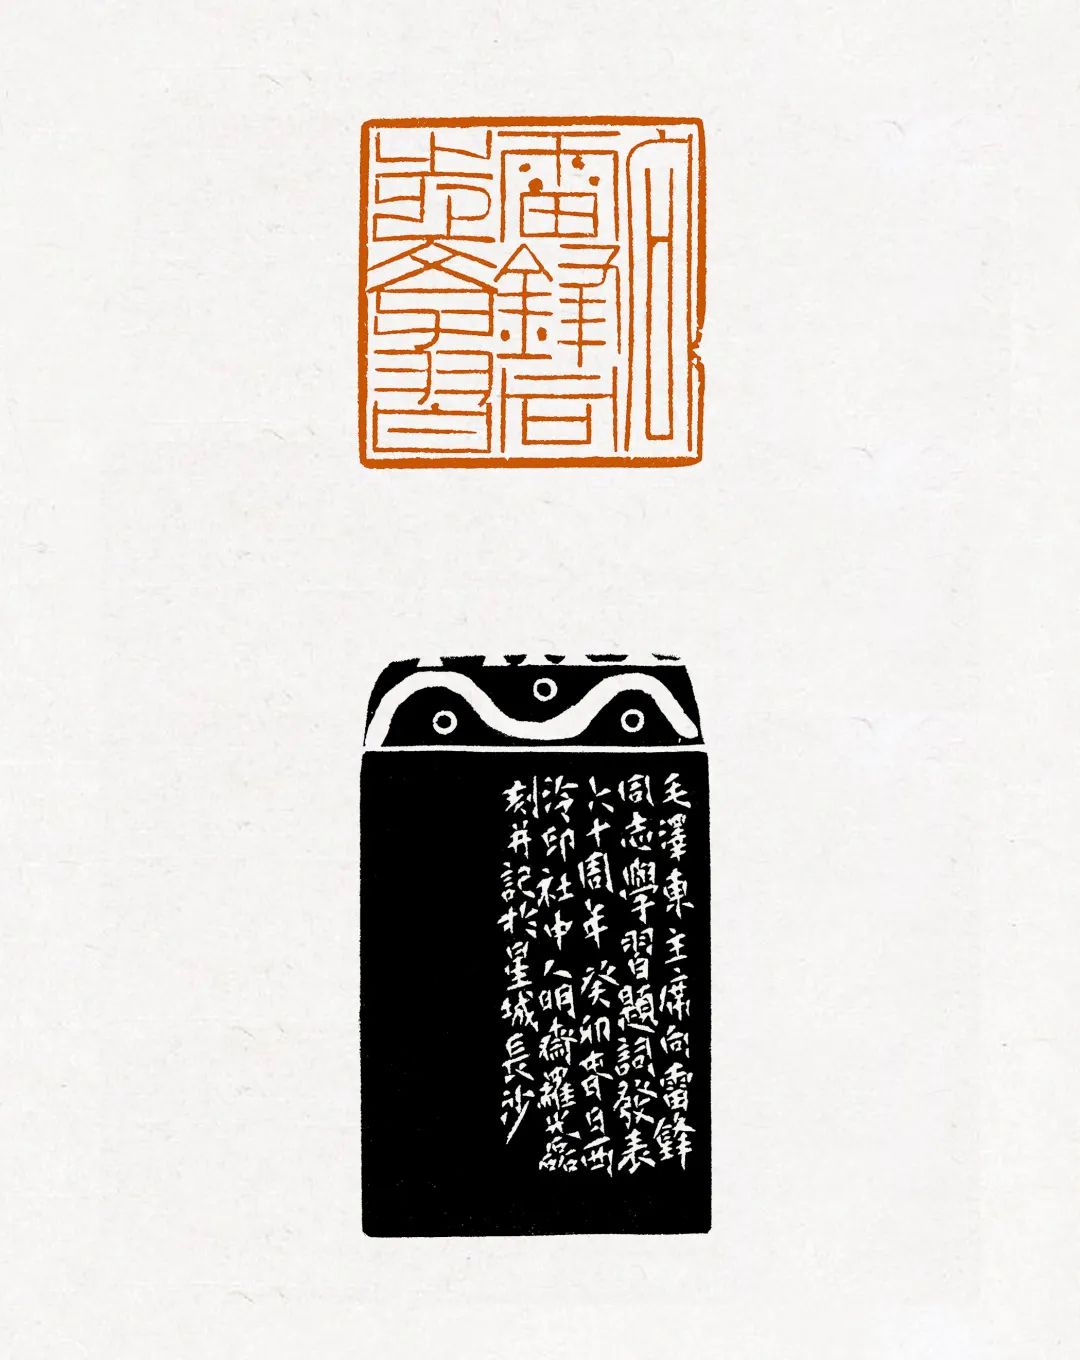 向
雷鋒同
志學習
毛澤東主席向雷鋒
同志學習題詞發表
六十周年癸卯春日西
泠印社中人明齋羅光磊
刻并記於星城長沙